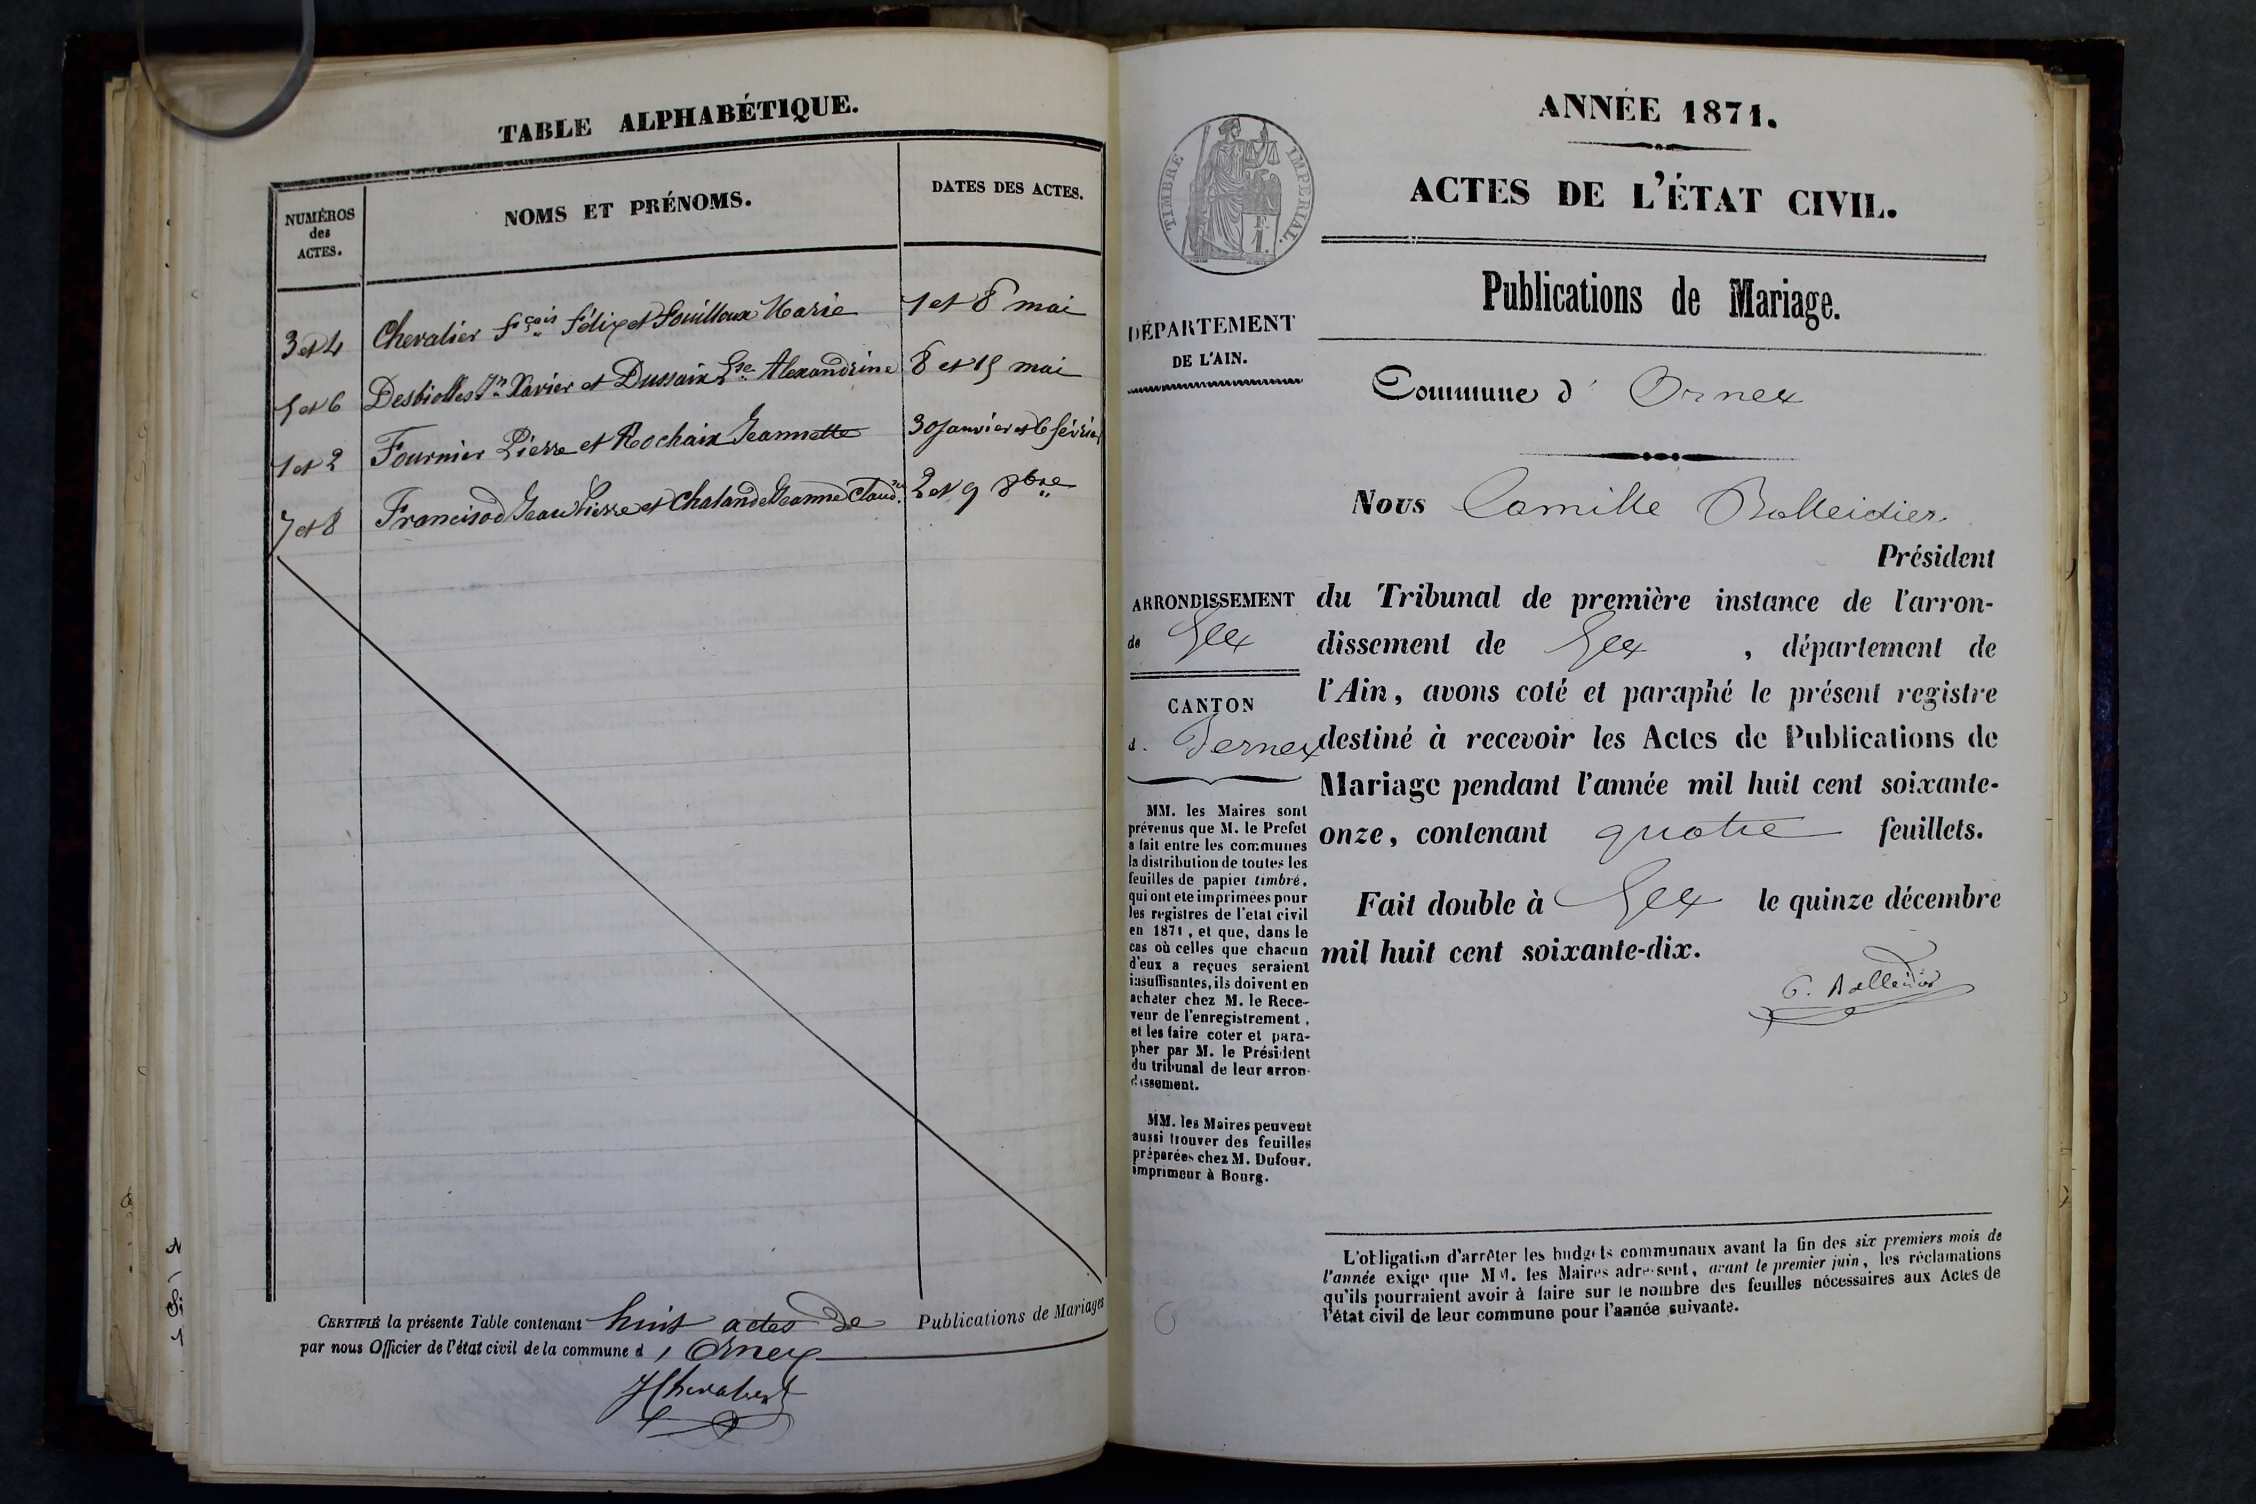 TABLE ALPHABÉTIQUE.
NUMÉROS
des
ACTES.
NOMS ET PRÉNOMS.
DATES DES ACTES.
3 et 4 Chevalier fçois félix et Fouilloux Marie 1 et 8 mai
5 et 6 Desbiolles Jn Xavier et Dussaix Lse Alexandrine 8 et 15 mai
1 et 2 Fournier Pierre et Rochaix Jeannette 30 janvier et 6 février
7 et 8 Francisod Jean Pierre et Chaland Jeanne Claud.ne 2 et 9 8bre
CERTIFIÉ la présente Table contenant huit actes de Publications de Mariages
par nous Officier de l'état civil de la commune d'Ornex
ANNÉE 1871.
TIMBRE IMPÉRIAL.
F.
1.
ACTES DE L'ÉTAT CIVIL.
Publications de Mariage.
DÉPARTEMENT
DE L'AIN.
Commune d'Ornex
Nous Camille Balleidier
Président
ARRONDISSEMENT
de Gex
CANTON
d. Ferney
du Tribunal de première instance de l'arron-
dissement de Gex, département de
l'Ain, avons coté et paraphé le présent registre
destiné à recevoir les Actes de Publications de
Mariage pendant l'année mil huit cent soixante-
onze, contenant quatre feuillets.
Fait double à Gex le quinze décembre
mil huit cent soixante-dix.
C. Balleidier
MM. les Maires sont
prévenus que M. le Préfet
a fait entre les communes
la distribution de toutes les
feuilles de papier timbré,
qui ont été imprimées pour
les registres de l'état civil
en 1871, et que, dans le
cas où celles que chacun
d'eux a reçues seraient
insuffisantes, ils doivent en
acheter chez M. le Rece-
veur de l'enregistrement,
et les faire coter et para-
pher par M. le Président
du tribunal de leur arron-
dissement.
MM. les Maires peuvent
aussi trouver des feuilles
préparées chez M. Dufour,
imprimeur à Bourg.
L'obligation d'arrêter les budgets communaux avant la fin des six premiers mois de
l'année exige que MM. les Maires adressent, avant le premier juin, les réclamations
qu'ils pourraient avoir à faire sur le nombre des feuilles nécessaires aux Actes de
l'état civil de leur commune pour l'année suivante.